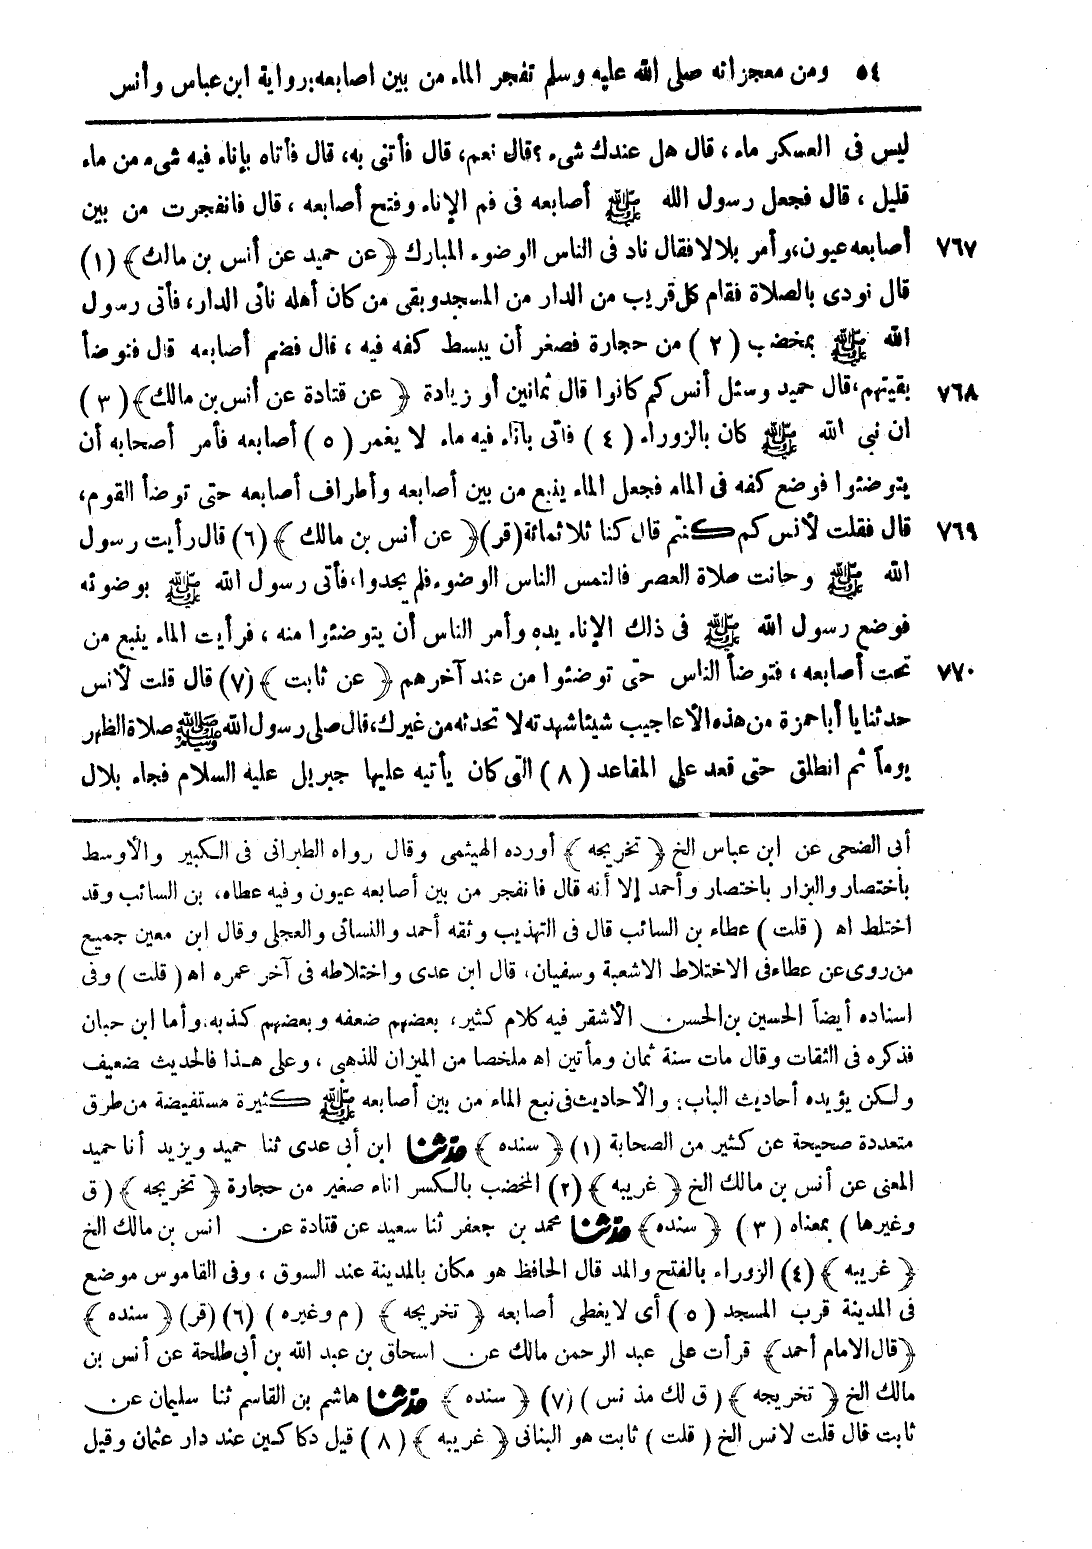 ٥٤ ومن معجزاته صلى الله عليه وسلم تفجر الماء من بين اصابعه:رواية ابن عباس وأنس
ليس فى العسكر ماء ، قال هل عندك شىء ؟ قال نعم، قال فأتنى به، قال فأتاه بإناء فيه شىء من ماء
قليل ، قال فجعل رسول الله ﷺ أصابعه فى فم الإناء وفتح أصابعه ، قال فانفجرت من بين
٧٦٧ أصابعه عيون، وأمر بلالا فقال ناد فى الناس الوضوء المبارك ﴿ عن حميد عن أنس بن مالك ﴾ (١)
قال نودى بالصلاة فقام كل قريب من الدار من المسجد وبقى من كان أهله نائى الدار، فأتى رسول
الله ﷺ بمخضب ( ٢ ) من حجارة فصغر أن يبسط كفه فيه ، قال فضم أصابعه قال فتوضأ
٧٦٨ بقيتهم، قال حميد وسئل أنس كم كانوا قال ثمانين أو زيادة ﴿ عن قتادة عن أنس بن مالك ﴾ ( ٣ )
ان نبى الله ﷺ كان بالزوراء ( ٤ ) فأتى بإناء فيه ماء لا يغمر ( ٥ ) أصابعه فأمر أصحابه أن
يتوضئوا فوضع كفه فى الماء فجعل الماء ينبع من بين أصابعه وأطراف أصابعه حتى توضأ القوم،
٧٦٩ قال فقلت لأنس كم كنتم قال كنا ثلاثمائة (قر) ﴿ عن أنس بن مالك ﴾ (٦) قال رأيت رسول
الله ﷺ وحانت صلاة العصر فالتمس الناس الوضوء فلم يجدوا، فأتى رسول الله ﷺ بوضوئه
فوضع رسول الله ﷺ فى ذاك الإناء يده وأمر الناس أن يتوضئوا منه ، فرأيت الماء ينبع من
٧٧٠ تحت أصابعه ، فتوضأ الناس حتى توضئوا من عند آخرهم ﴿ عن ثابت ﴾ (٧) قال قلت لأنس
حدثنا يا أبا حمزة من هذه الأعاجيب شيئا شهدته لا تحدثه من غيرك، قال صلى رسول الله ﷺ صلاة الظهر
يوماً ثم انطلق حتى قعد على المقاعد ( ٨ ) التى كان يأتيه عليها جبريل عليه السلام فجاء بلال
أبى الضحى عن ابن عباس الخ ﴿ تخريجه ﴾ أورده الهيثمى وقال رواه الطبرانى فى الكبير والأوسط
باختصار والبزار باختصار وأحمد إلا أنه قال فانفجر من بين أصابعه عيون وفيه عطاء، بن السائب وقد
اختلط اه ( قلت ) عطاء بن السائب قال فى التهذيب وثقه أحمد والنسائى والعجلى وقال ابن معين جميع
من روى عن عطاء فى الاختلاط الا شعبة وسفيان، قال ابن عدى واختلاطه فى آخر عمره اه ( قلت ) وفى
اسناده أيضاً الحسين بن الحسن الأشقر فيه كلام كثير، بعضهم ضعفه وبعضهم كذبه، وأما ابن حبان
فذكره فى الثقات وقال مات سنة ثمان ومأتين اه ملخصا من الميزان للذهبى ، وعلى هذا فالحديث ضعيف
ولكن يؤيده أحاديث الباب: والأحاديث فى نبع الماء من بين أصابعه ﷺ كثيرة مستفيضة من طرق
متعددة صحيحة عن كثير من الصحابة (١) ﴿ سنده ﴾ حدثنا ابن أبى عدى ثنا حميد ويزيد أنا حميد
المعنى عن أنس بن مالك الخ ﴿ غريبه ﴾ (٢) المخضب بالكسر اناء صغير من حجارة ﴿ تخريجه ﴾ ( ق
وغيرها ) بمعناه ( ٣ ) ﴿ سنده ﴾ حدثنا محمد بن جعفر ثنا سعيد عن قتادة عن انس بن مالك الخ
﴿ غريبه ﴾ (٤) الزوراء بالفتح والمد قال الحافظ هو مكان بالمدينة عند السوق ، وفى القاموس موضع
فى المدينة قرب المسجد ( ٥ ) أى لا يغطى أصابعه ﴿ تخريجه ﴾ ( م وغيره ) (٦) (قر) ﴿ سنده ﴾
﴿ قال الامام أحمد ﴾ قرأت على عبد الرحمن مالك عن اسحاق بن عبد الله بن أبى طلحة عن أنس بن
مالك الخ ﴿ تخريجه ﴾ ( ق لك مذ نس ) (٧) ﴿ سنده ﴾ حدثنا هاشم بن القاسم ثنا سليمان عن
ثابت قال قلت لانس الخ ( قلت ) ثابت هو البنانى ﴿ غريبه ﴾ ( ٨ ) قيل دكاكين عند دار عثمان وقيل